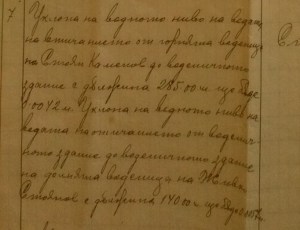 7 Уклона на водното ниво на водата
на отичанието от горнята воденица
на Стоян Каменов до воденичното
здание с дължина 285.00 м. ще бъде
0.0042 м. Уклона на водното ниво на
водата на отичанието от водени-
чното здание до воденичното здание
на долнята воденица на Желю
Стоянов с дължина 140.00 м. ще бъде